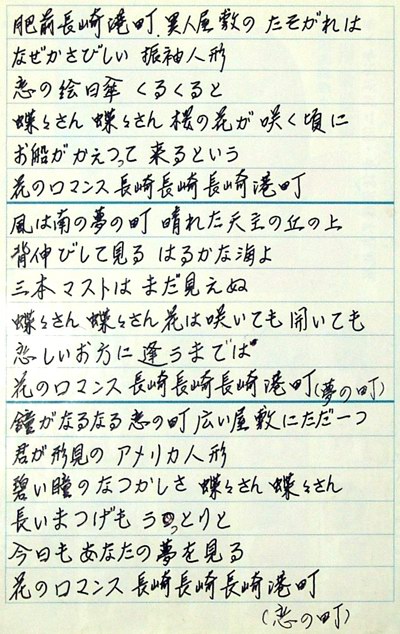 肥前長崎港町、異人屋敷の たそがれは
なぜかさびしい 振袖人形
恋の絵日傘 くるくると
蝶々さん 蝶々さん 桜の花が 咲く頃に
お船がかえって 来るという
花のロマンス 長崎長崎長崎港町
風は南の夢の町 晴れた天主の丘の上
背伸びして見る はるかな海よ
三本マストは まだ見えぬ
蝶々さん 蝶々さん 花は咲いても 開いても
恋しいお方に 逢うまでは
花のロマンス 長崎長崎長崎港町(夢の町)
鐘がなるなる 恋の町 広い屋敷に ただ一つ
君が形見の アメリカ人形
碧い瞳の なつかしさ 蝶々さん 蝶々さん
長いまつげも うっとりと
今日も あなたの 夢を見る
花のロマンス 長崎長崎長崎港町
(恋の町)